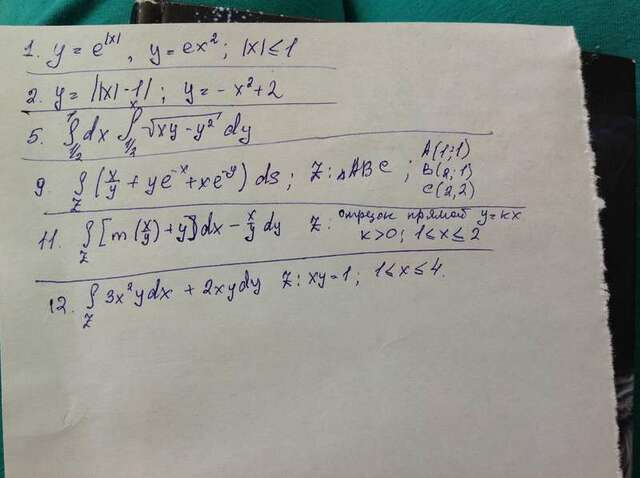 1. y = e^|x| , y = ex²; |x| ≤ 1
2. y = ||x| - 1|; y = - x² + 2
5. ∫_{1/2}^{1} dx ∫_{1/2}^{x} √(xy - y²) dy
9. ∫_Z (x/y + ye^-x + xe^-y) ds; Z: ΔABC; A(1;1)
B(2;1)
C(2,2)
11. ∫_Z [m(x/y) + y] dx - x/y dy Z: отрезок прямой y = kx
k>0; 1≤x≤2
12. ∫_Z 3x²ydx + 2xydy Z: xy = 1; 1≤x≤4.